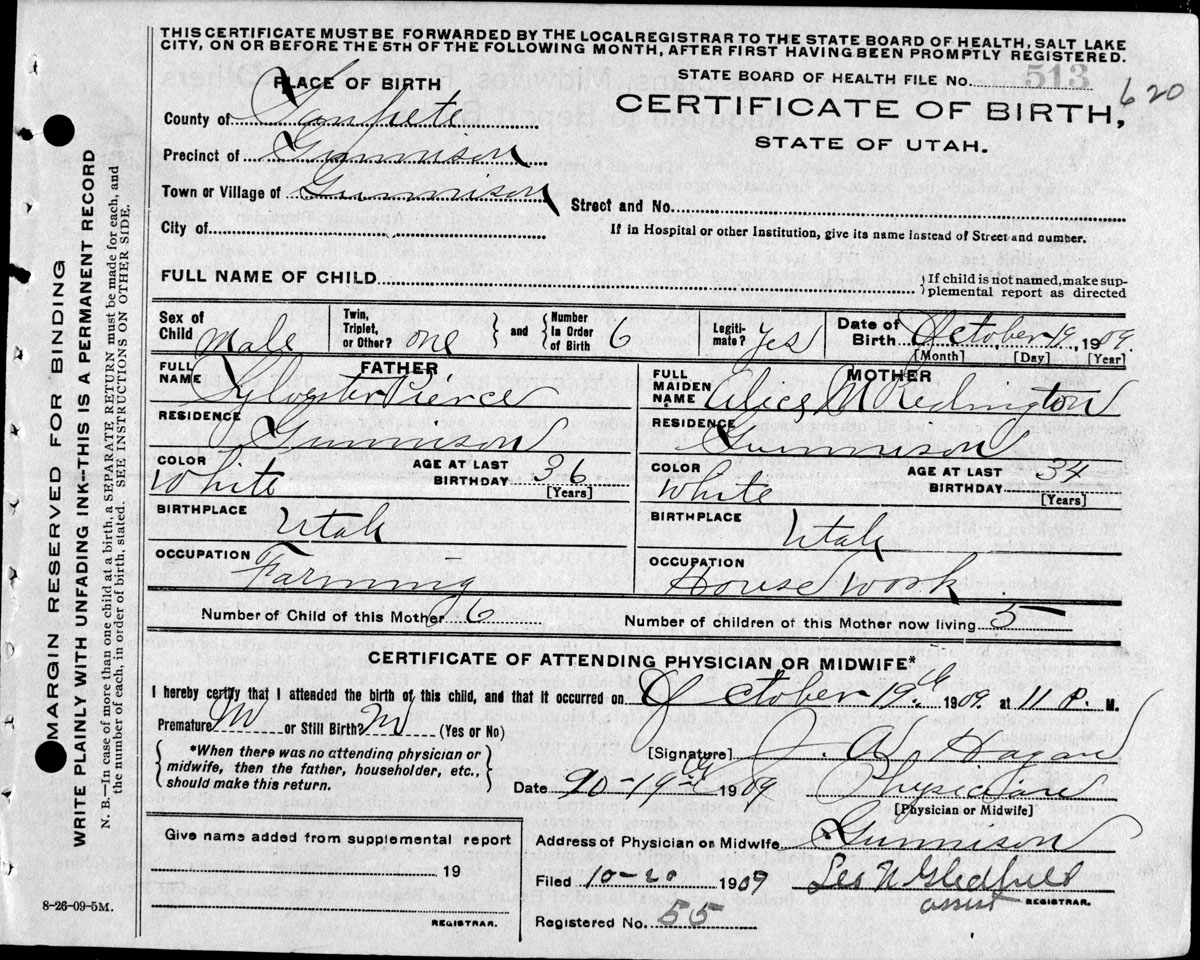 THIS CERTIFICATE MUST BE FORWARDED BY THE LOCALREGISTRAR TO THE STATE BOARD OF HEALTH, SALT LAKE
CITY, ON OR BEFORE THE 5TH OF THE FOLLOWING MONTH, AFTER FIRST HAVING BEEN PROMPTLY REGISTERED.
STATE BOARD OF HEALTH FILE No. 513
620
PLACE OF BIRTH
CERTIFICATE OF BIRTH,
STATE OF UTAH.
County of Sanpete
Precinct of Gunnison
Town or Village of Gunnison
Street and No.
City of
If in Hospital or other Institution, give its name instead of Street and number.
FULL NAME OF CHILD
} If child is not named, make sup-
plemental report as directed
Sex of Child Male
Twin, Triplet, or Other? one } and { Number In Order of Birth 6
Legiti-mate? Yes
Date of Birth October 19 1909.
[Month] [Day] [Year]
FATHER
FULL NAME Sylvester Pierce
RESIDENCE Gunnison
COLOR White
AGE AT LAST BIRTHDAY 36
[Years]
BIRTHPLACE Utah
OCCUPATION Farming
MOTHER
FULL MAIDEN NAME Alice M Redington
RESIDENCE Gunnison
COLOR White
AGE AT LAST BIRTHDAY 34
[Years]
BIRTHPLACE Utah
OCCUPATION House Work
Number of Child of this Mother 6
Number of children of this Mother now living 5
CERTIFICATE OF ATTENDING PHYSICIAN OR MIDWIFE*
I hereby certify that I attended the birth of this child, and that it occurred on October 19th 1909. at 11 P. M.
Premature? or Still Birth? (Yes or No)
{ *When there was no attending physician or
midwife, then the father, householder, etc.,
should make this return. }
[Signature] J. A. Hagan
Date 1909
Physician
[Physician or Midwife]
Address of Physician or Midwife Gunnison
Filed 10-20 1909
Gledhill
assist REGISTRAR.
Registered No. 55
Give name added from supplemental report
19
REGISTRAR.
8-26-09-5M.
MARGIN RESERVED FOR BINDING
WRITE PLAINLY WITH UNFADING INK—THIS IS A PERMANENT RECORD
N. B.—In case of more than one child at a birth, a SEPARATE RETURN must be made for each, and
the number of each, in order of birth, stated. SEE INSTRUCTIONS ON OTHER SIDE.